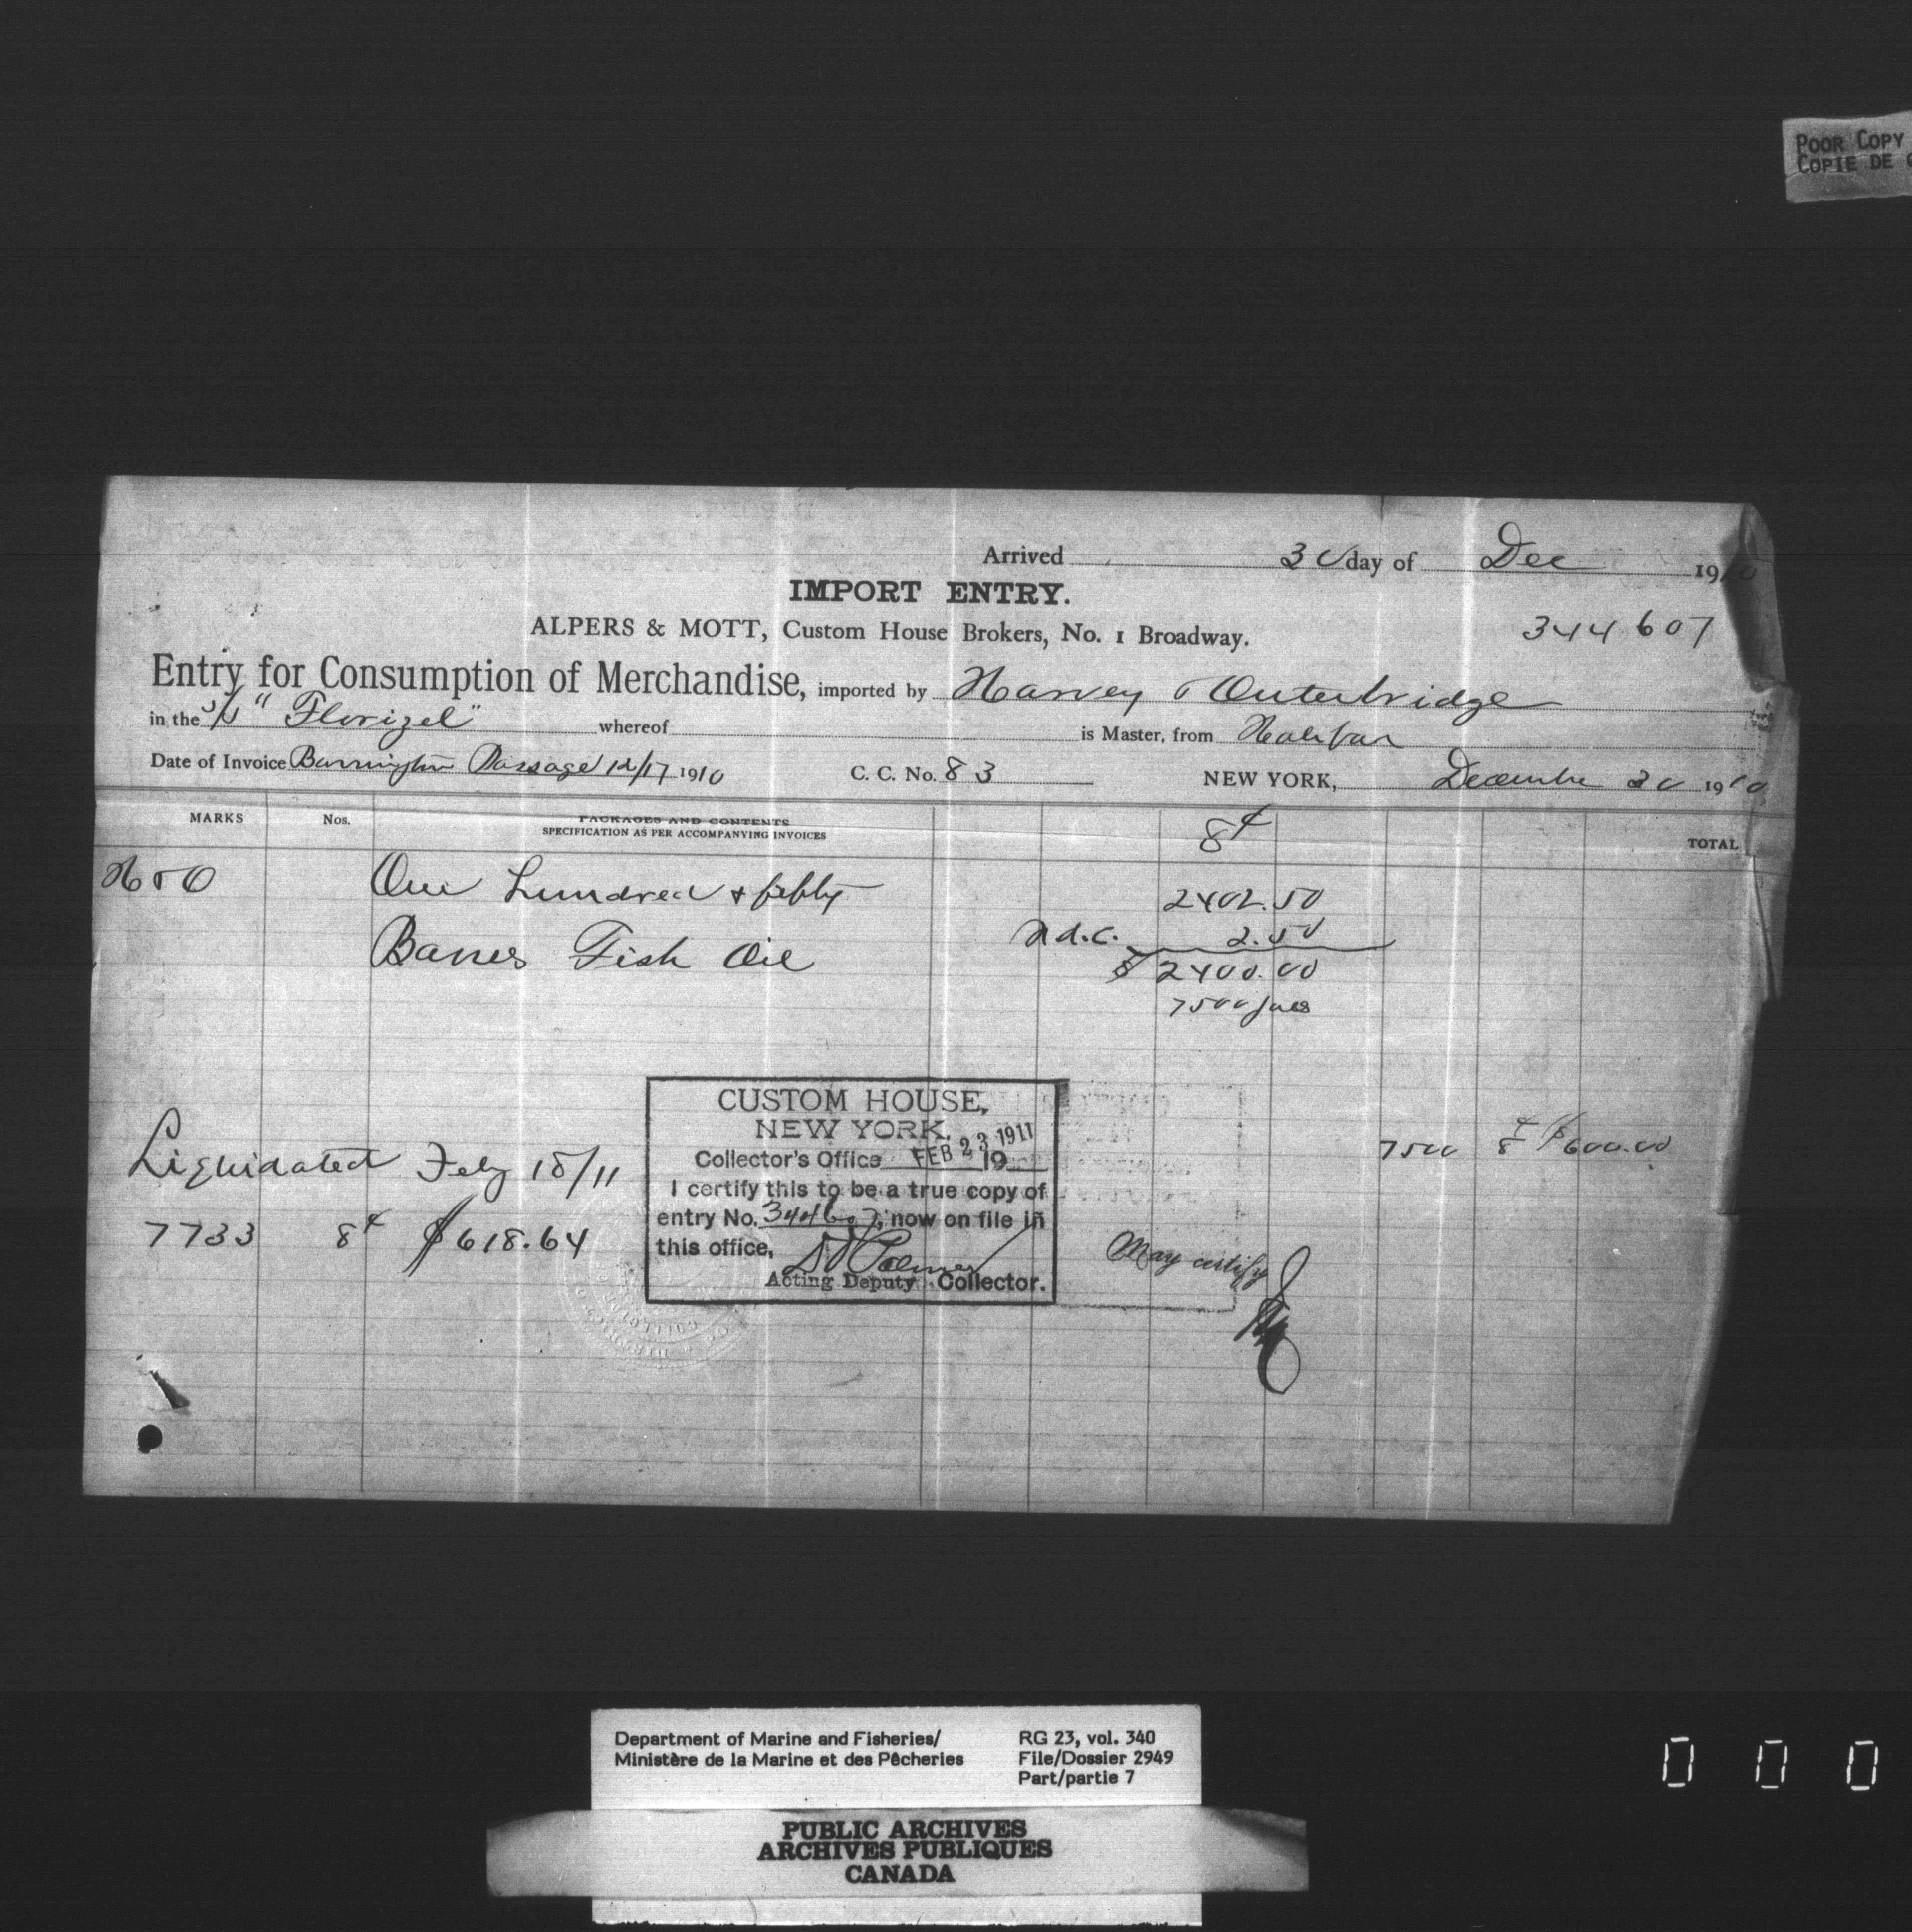 POOR COPY
COPIE DE
Arrived 30 day of Dec 1910
IMPORT ENTRY.
ALPERS & MOTT, Custom House Brokers, No. 1 Broadway.
344607
Entry for Consumption of Merchandise, imported by Harvey & Outerbridge
in the S/S "Florizel" whereof is Master, from Halifax
Date of Invoice Barrington Passage 12/17 1910 C. C. No. 83 NEW YORK, December 30 1910
MARKS Nos. PACKAGES AND CONTENTS
SPECIFICATION AS PER ACCOMPANYING INVOICES
8¢ TOTAL
H & O One hundred & fifty 2402.50
Barrels Fish Oil n.d.c. 2.50
$ 2400.00
7500 gals
CUSTOM HOUSE,
NEW YORK,
Collector's Office FEB 23 1911 19
I certify this to be a true copy of
entry No. 344607, now on file in
this office,
Acting Deputy Collector.
7500 8¢ $600.00
Liquidated Feby 18/11
7733 8¢ $618.64
May certify
Department of Marine and Fisheries/
Ministère de la Marine et des Pêcheries
RG 23, vol. 340
File/Dossier 2949
Part/partie 7
PUBLIC ARCHIVES
ARCHIVES PUBLIQUES
CANADA
0 0 0